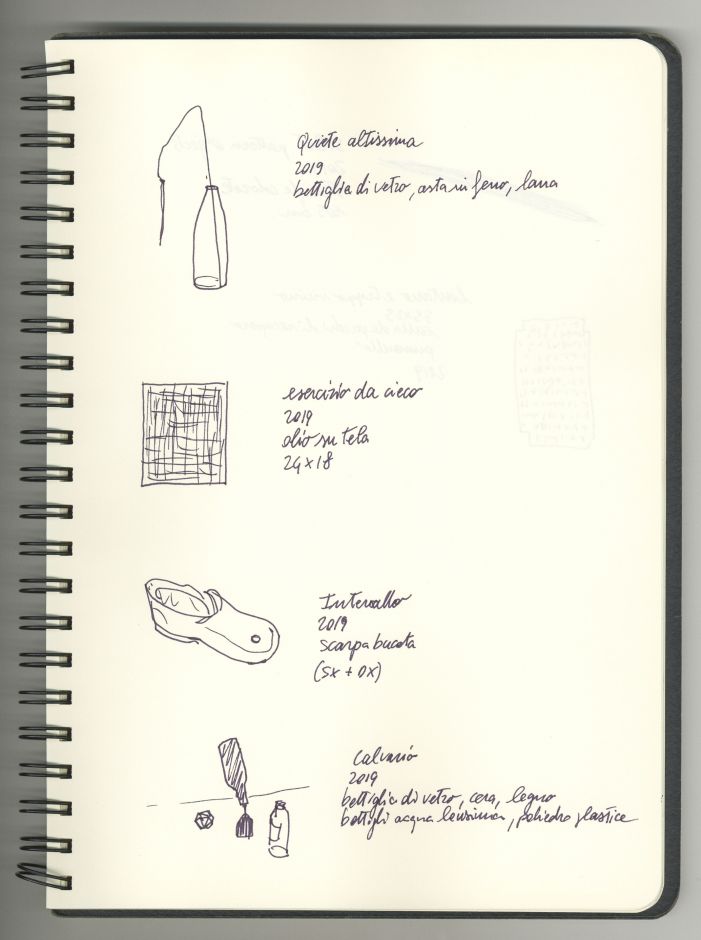 Quiete altissima
2019
bottiglia di vetro, asta in ferro, lana
esercizio da cieco
2019
olio su tela
24x18
Intervallo
2019
scarpa bucata
(sx + dx)
Calvario
2019
bottiglia di vetro, cera, legno
bottigli acqua levissima, poliedro plastice